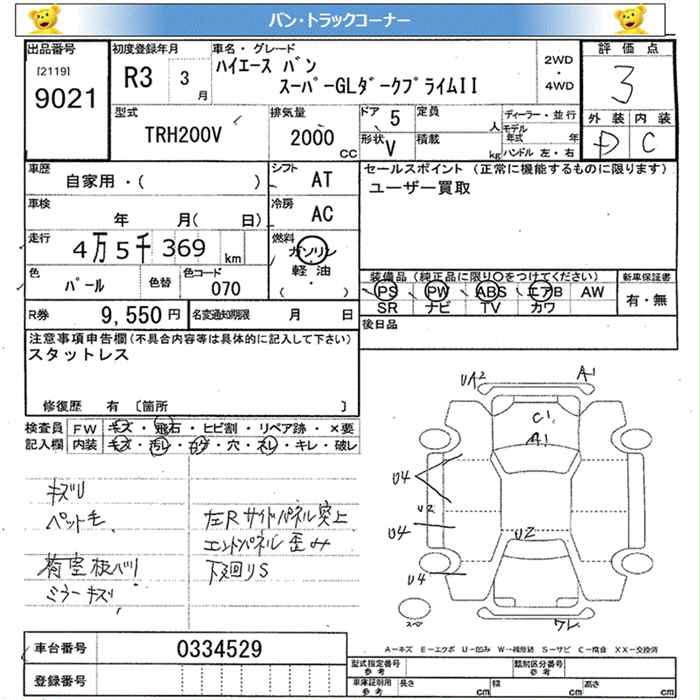 バン・トラックコーナー
出品番号 初度登録年月 車名・グレード 評価点
[2119] 9021 R3 3月 ハイエース バン 2WD・4WD 3
スーパーGLダークプライムII
型式 排気量 ドア 5 定員 人 ディーラー・並行 外装 内装
TRH200V 2000 CC 形状 V 積載 kg モデル年式 年 D C
ハンドル 左・右
車歴 シフト セールスポイント (正常に機能するものに限ります)
自家用・( ) AT ユーザー買取
車検 年 月( 日) 冷房 AC
走行 4万5千369 km 燃料 ガソリン・軽油・( )
色 パール 色替 色コード 070
装備品 (純正品に限り○をつけてください) 新車保証書
PS PW ABS エアB AW 有・無
SR ナビ TV カワ
R券 9,550円 名変通知期限 月 日 後日品
注意事項申告欄(不具合内容等は具体的に記入して下さい)
スタットレス
修復歴 有 〔箇所 〕
検査員 FW キズ・飛石・ヒビ割・リペア跡・×要
記入欄 内装 キズ・汚レ・コゲ・穴・スレ・キレ・破レ
キズリ
ペット毛
荷室板バリ
ミラーキズ
左Rサイドパネル突上
エンドパネル歪み
下廻りS
UA2 A1
C1
A1
U4
U2
U4
U2
U4
スペ ワレ
A-キズ E-エクボ U-凹み W-補修跡 S-サビ C-腐食 XX-交換済
車台番号 0334529
登録番号
型式指定番号 参考 類別区分番号 参考
車庫証明用 参考 長さ cm 幅 cm 高さ cm